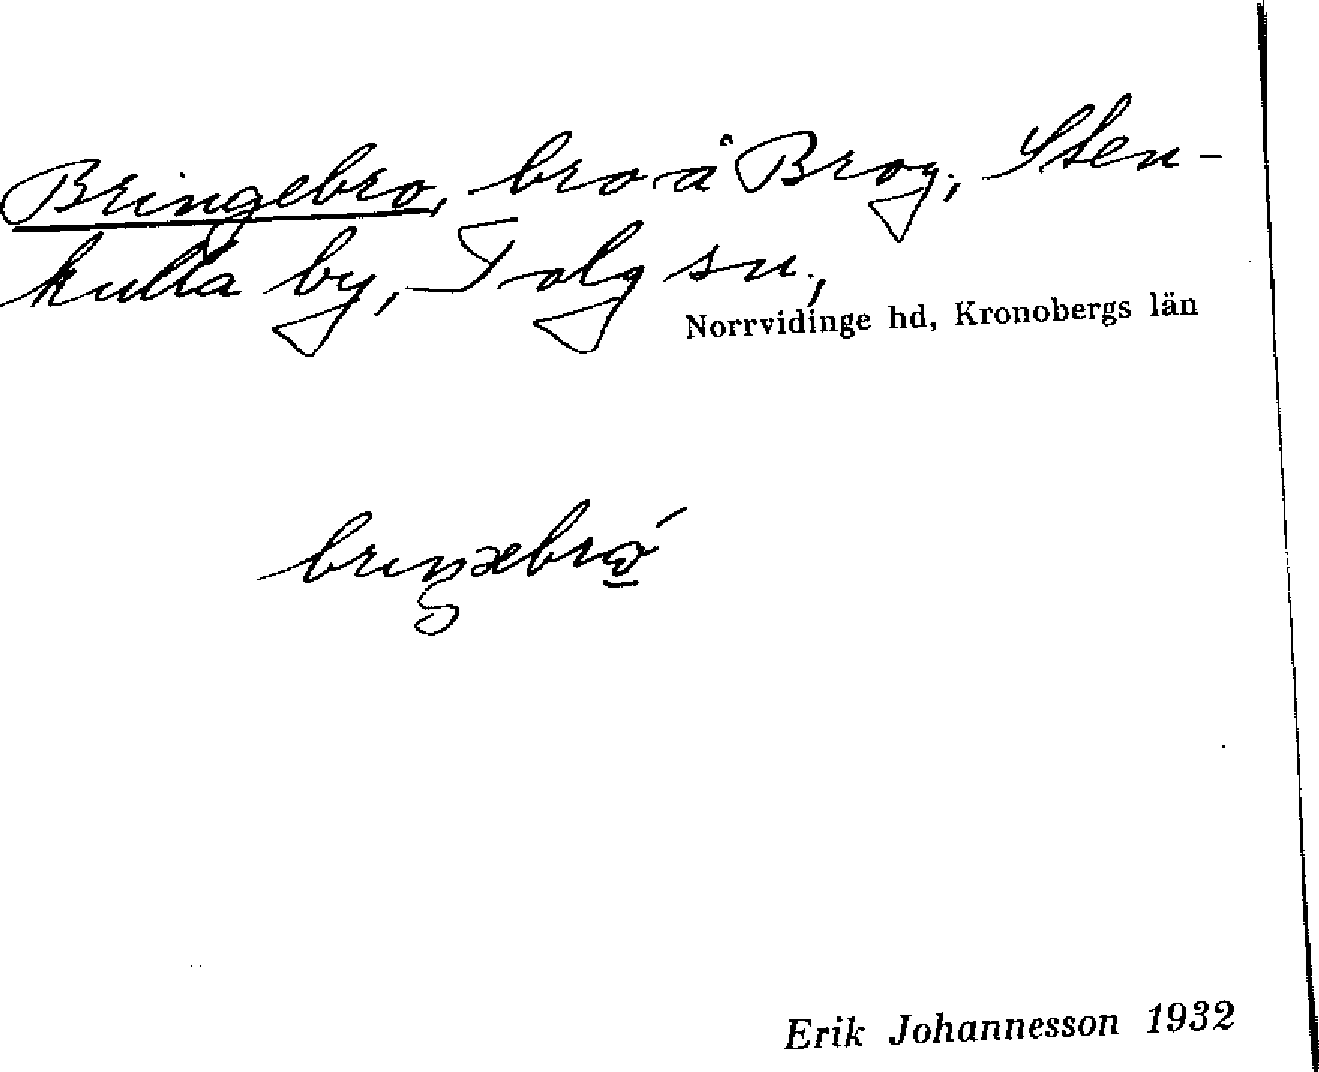 Bringebro, bro å Brog., Sten-
kulla by, Tolg sn.,
Norrvidinge hd, Kronobergs län
Erik Johannesson 1932